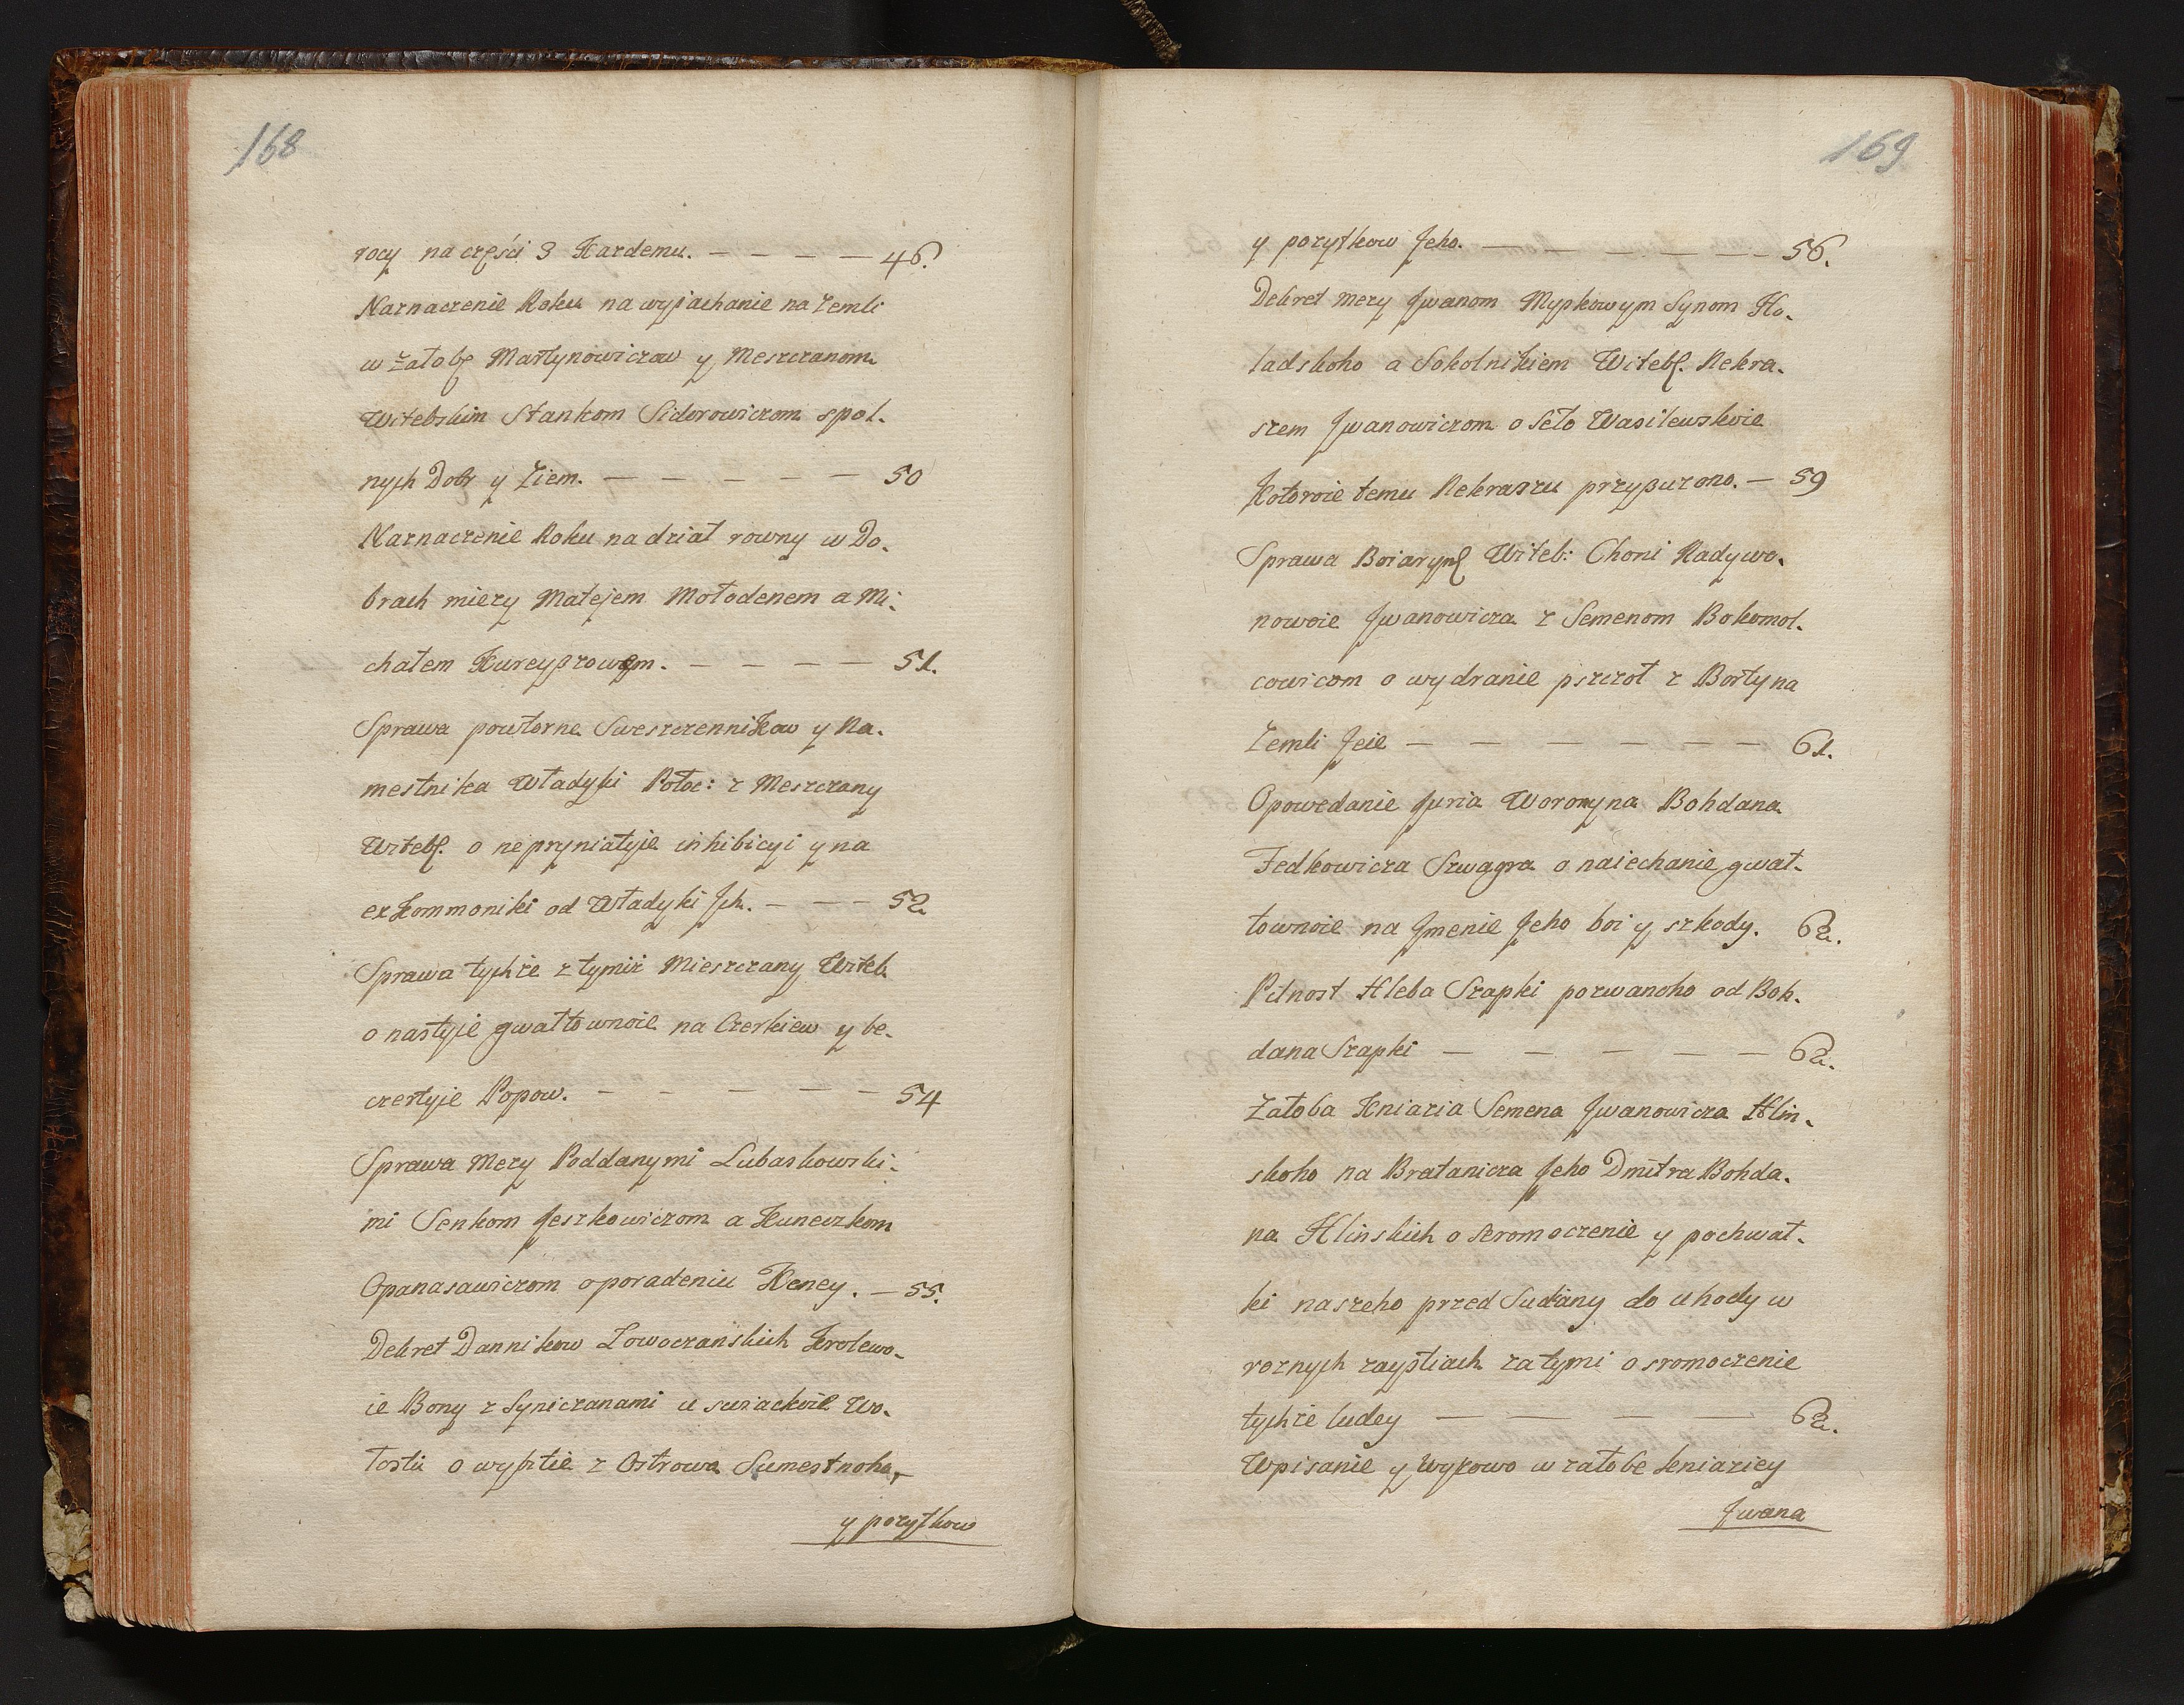 168
rocy na części 3 Kazdemu. — — — — 46.
Naznaczenie Roku na wyjachanie na zemli
w żałobę Martynowiczow y Meszczanom
Witebskim Stankom Sidorowiczom spol-
nych Dobr y Ziem. — — — — — 50
Naznaczenie Roku na dział rowny w Do-
brach miezy Matejem Mołodenem a Mi-
chałem Kureyszowym. — — — — 51.
Sprawa powtorne Sweszczennikow y Na-
mestnika Władyki Połoc: z Meszczany
Witebs. o nepryniatyie inhibicyi y na
exkommoniki od Władyki Jch. — — — 52
Sprawa tychże z tymiż Mieszczany Witeb.
o nastyie gwałtownoie na Czerkiew y be-
czestyie Popow. — — — — — 54
Sprawa Mezy Poddanymi Lubaskowski-
mi Senkom Jeszkowiczom a Kuneczkom
Opanasawiczom o poradeniu Keney. — 55.
Dekret Dannikow Lowoczanskich Krolewo-
ie Bony z Syniczanami u swiackoie Wo-
łosti o wybitie z Ostrowa Sumestnoho,
y pozytkow
169
y pozytkow Jeho. — — — — — — 56.
Dekret mezy Jwanom Mypkowym Synom Ho-
ladskoho a Sokolnikiem Witebs. Nekra-
szem Jwanowiczom o Seło Wasilewskoie
Kotoroie temu Nekraszu przysuzono. — 59
Sprawa Boiaryns Witeb: Choni Radywo-
nowoie Jwanowicza z Semenom Bokomol-
cowicom o wydranie pszczoł z Borty na
Zemli Jeie — — — — — — 61.
Opowedanie Juria Woronyna Bohdana
Fedkowicza Szwagra o naiechanie gwał-
townoie na Jmenie Jeho boi y szkody. 62.
Pilnost Hleba Szapki pozwanoho od Boh-
dana Szapki — — — — — 62.
Załoba Kniazia Semena Jwanowicza Hlin-
skoho na Bratanicza Jeho Dmitra Bohda-
na Hlinskich o Seromoczenie y pochwał-
ki naszeho przed Sudiany do uhody w
roznych zaystiach zatymi o sromoczenie
tychże ludey — — — — 62.
Wpisanie y Wyzowo w załobe kniaziey
Jwana